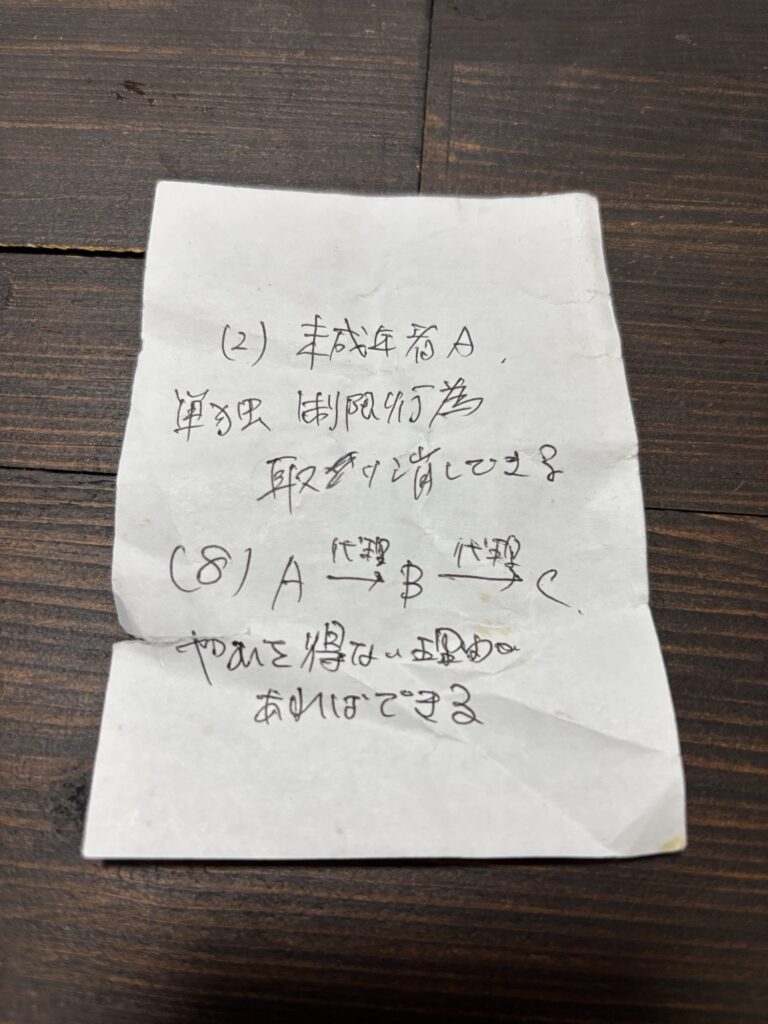 (2) 未成年者A.
単独 制限行為
取り消しできる
(8) A 代理→ B 代理→ C.
やむを得ない理由が
あればできる